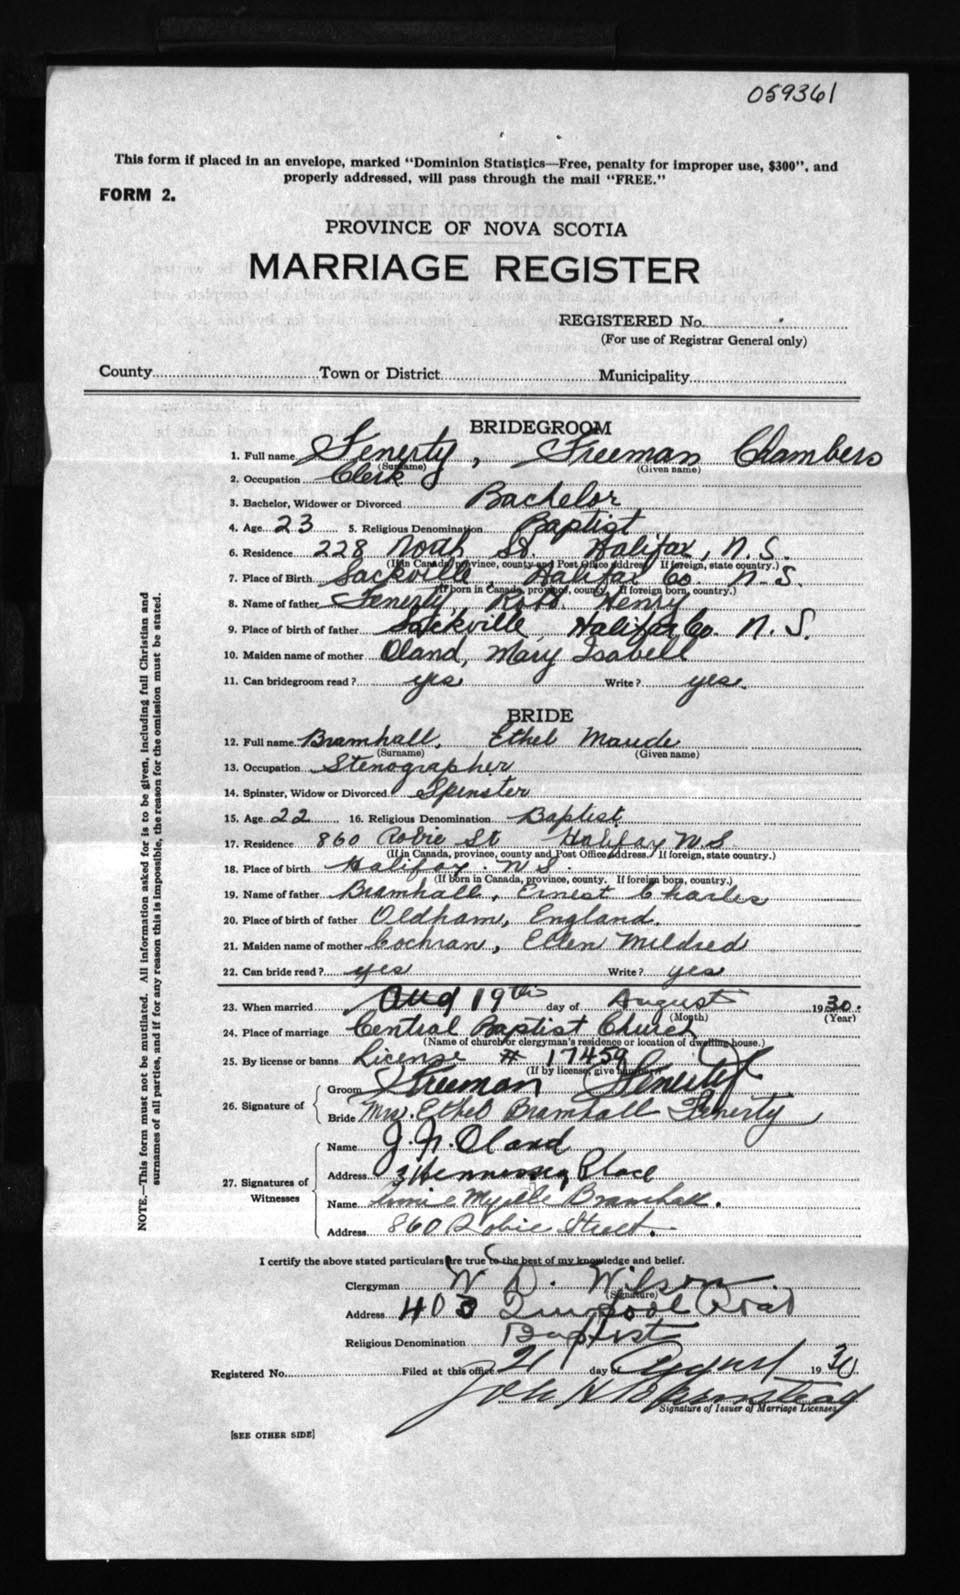 059361
This form if placed in an envelope, marked "Dominion Statistics—Free, penalty for improper use, $300", and
properly addressed, will pass through the mail "FREE."
FORM 2.
PROVINCE OF NOVA SCOTIA
MARRIAGE REGISTER
REGISTERED No.
(For use of Registrar General only)
County Town or District Municipality
BRIDEGROOM
1. Full name Fenerty, Freeman Chambers
(Surname) (Given name)
2. Occupation Clerk
3. Bachelor, Widower or Divorced Bachelor
4. Age 23 5. Religious Denomination Baptist
6. Residence 228 North St. Halifax, N.S.
(If in Canada, province, county and Post Office address. If foreign, state country.)
7. Place of Birth Sackville, Halifax Co. N.S.
(If born in Canada, province, county. If foreign born, country.)
8. Name of father Fenerty, Robt. Henry
9. Place of birth of father Sackville, Halifax Co. N.S.
10. Maiden name of mother Oland, Mary Isabell
11. Can bridegroom read? yes Write? yes.
BRIDE
12. Full name Bramhall, Ethel Maude
(Surname) (Given name)
13. Occupation Stenographer
14. Spinster, Widow or Divorced Spinster
15. Age 22 16. Religious Denomination Baptist
17. Residence 860 Robie St Halifax N.S.
(If in Canada, province, county and Post Office address. If foreign, state country.)
18. Place of birth Halifax. N.S.
(If born in Canada, province, county. If foreign born, country.)
19. Name of father Bramhall, Ernest Charles
20. Place of birth of father Oldham, England.
21. Maiden name of mother Cochran, Ellen Mildred
22. Can bride read? yes Write? yes
23. When married Aug 19th day of August 1930.
(Month) (Year)
24. Place of marriage Central Baptist Church
(Name of church or clergyman's residence or location of dwelling house.)
25. By license or banns License # 17459
(If by license, give number)
26. Signature of Groom Freeman Fenerty
Bride Mrs. Ethel Bramhall Fenerty
27. Signatures of Witnesses Name J. N. Oland
Address 3 Hennessey Place
Name Myrtle Bramhall.
Address 860 Robie Street.
I certify the above stated particulars are true to the best of my knowledge and belief.
Clergyman W. D. Wilson
(Signature)
Address 403 Quinpool Road
Religious Denomination Baptist
Registered No. Filed at this office 21 day of August 1930
Signature of Issuer of Marriage Licenses
[SEE OTHER SIDE]
NOTE.—This form must not be mutilated. All information asked for is to be given, including full Christian and
surnames of all parties, and if for any reason this is impossible, the reason for the omission must be stated.